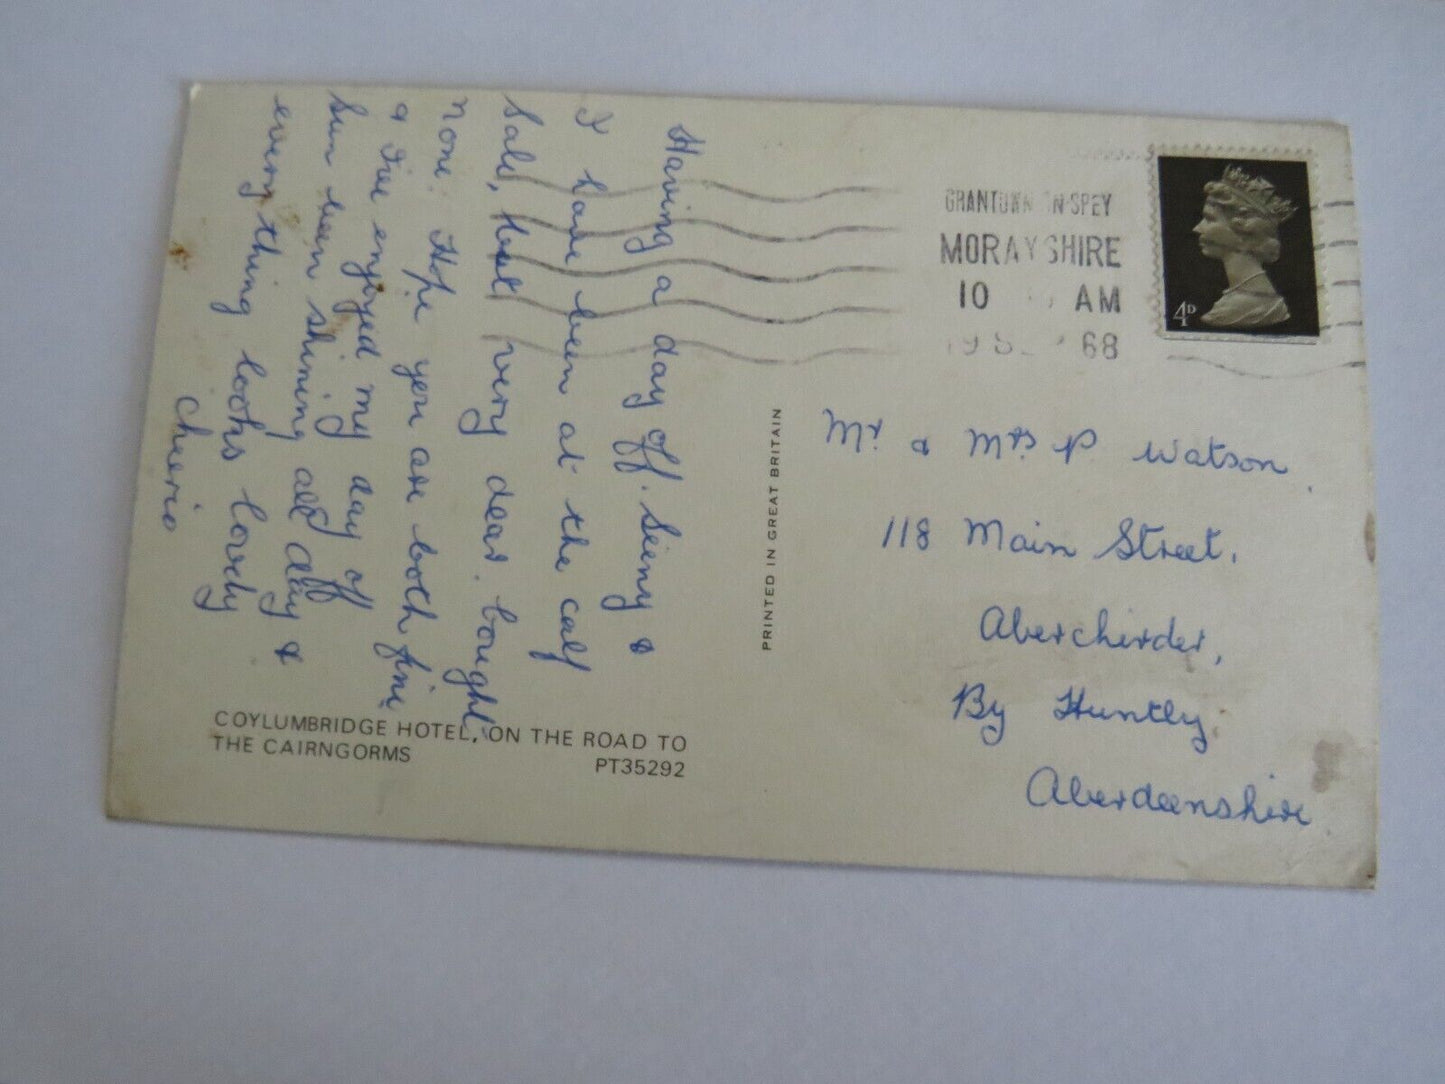 Having a day off. Sieny &
I have been at the calf
Sale, but very dear. bought
none. Hope you are both fine
& I've enjoyed my day off
Sun been shining all day &
every thing looks lovely
Cheerio
COYLUMBRIDGE HOTEL, ON THE ROAD TO
THE CAIRNGORMS
PT35292
PRINTED IN GREAT BRITAIN
GRANTOWN-ON-SPEY
MORAYSHIRE
10 AM
19 68
4D
Mr & Mrs P Watson
118 Main Street,
Aberchirder,
By Huntly,
Aberdeenshire